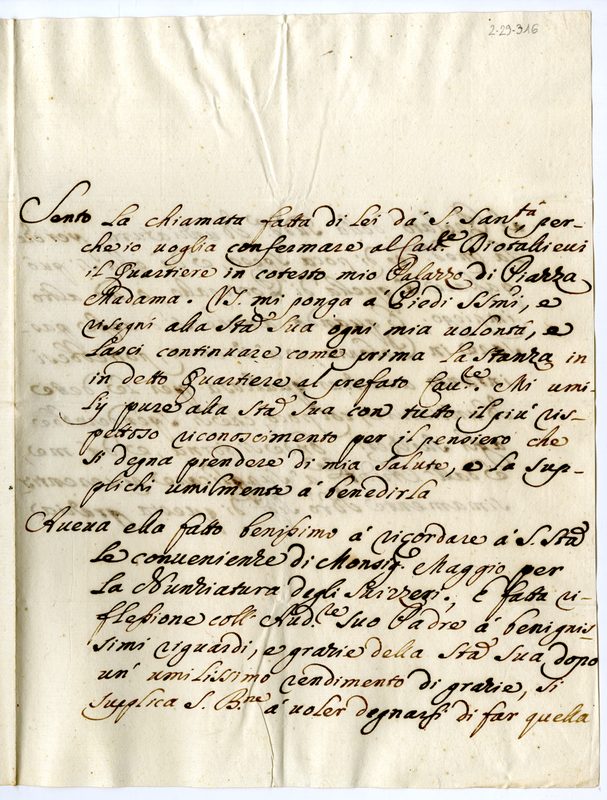 2-29-316
Sento la chiamata fatta di lei dà S. San.tà per-
che io voglia confermare al Cau.re Diotallieui
il Quartiere in cotesto mio Palazzo di Piazza
Madama. VS. mi ponga à Piedi SSmi, e
risegni alla Stà Sua ogni mia uolontà, e
lasci continuare come prima la stanza in
in detto Quartiere al prefato Cau.re. Mi umi-
lij pure alla Stà Sua con tutto il più ris-
pettoso riconoscimento per il pensiero che
si degna prendere di mia salute, e la sup-
plichi umilmente à benedirla
Aueua ella fatto benissimo à ricordare à S. Stà
le convenienze di Monsig.r Maggio per
la Nunziatura degli Suizzeri, e fatta ri-
flessione coll' Aud.re suo Padre à benignis-
simi riguardi, e grazie della Stà Sua dopo
un' umilissimo rendimento di grazie, si
supplica S. B.ne à voler degnarsi di far quella